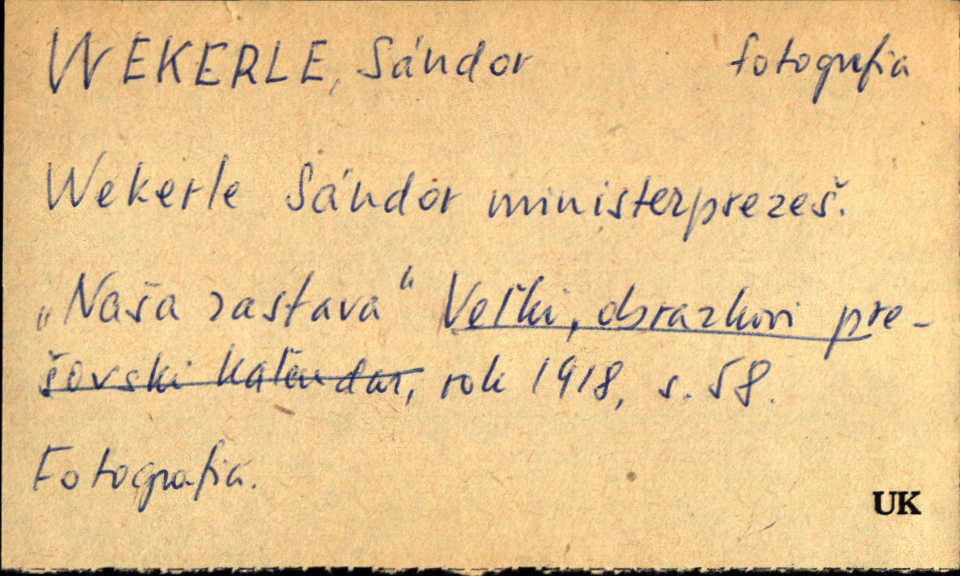 WEKERLE, Sándor fotografia
Wekerle Sándor ministerprezeš.
„Naša zastava“ Veľki, obrazkovi pre-
šovski kaľendar, rok 1918, s. 58.
Fotografia.
UK